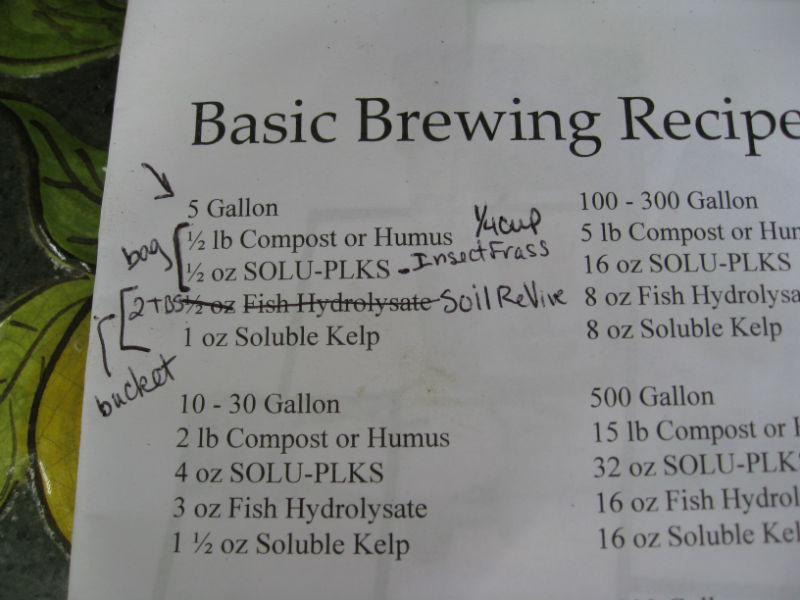 Basic Brewing Recipe
5 Gallon
1/4 cup
bag ½ lb Compost or Humus
½ oz SOLU-PLKS - Insect Frass
2 TBS ½ oz Fish Hydrolysate - Soil ReVive
1 oz Soluble Kelp
bucket
10 - 30 Gallon
2 lb Compost or Humus
4 oz SOLU-PLKS
3 oz Fish Hydrolysate
1 ½ oz Soluble Kelp
100 - 300 Gallon
5 lb Compost or Hum
16 oz SOLU-PLKS
8 oz Fish Hydrolysa
8 oz Soluble Kelp
500 Gallon
15 lb Compost or H
32 oz SOLU-PLK
16 oz Fish Hydrol
16 oz Soluble Kel